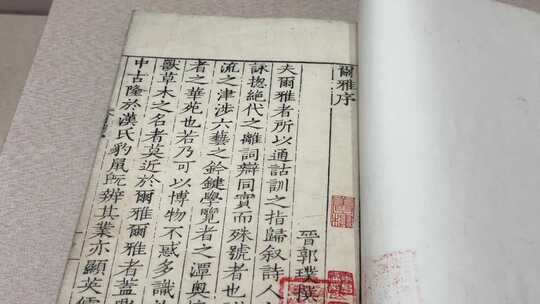 爾雅序
晉郭璞撰
夫爾雅者所以通詁訓之指歸敘詩人
詠揔絶代之離詞辯同實而殊號者也
流之津涉六藝之鈐鍵學覽者之潭奧
者之華苑也若乃可以博物不惑多識
獸草木之名者莫近於爾雅爾雅者蓋
中古隆於漢氏豹鼠既辨其業亦顯英儒